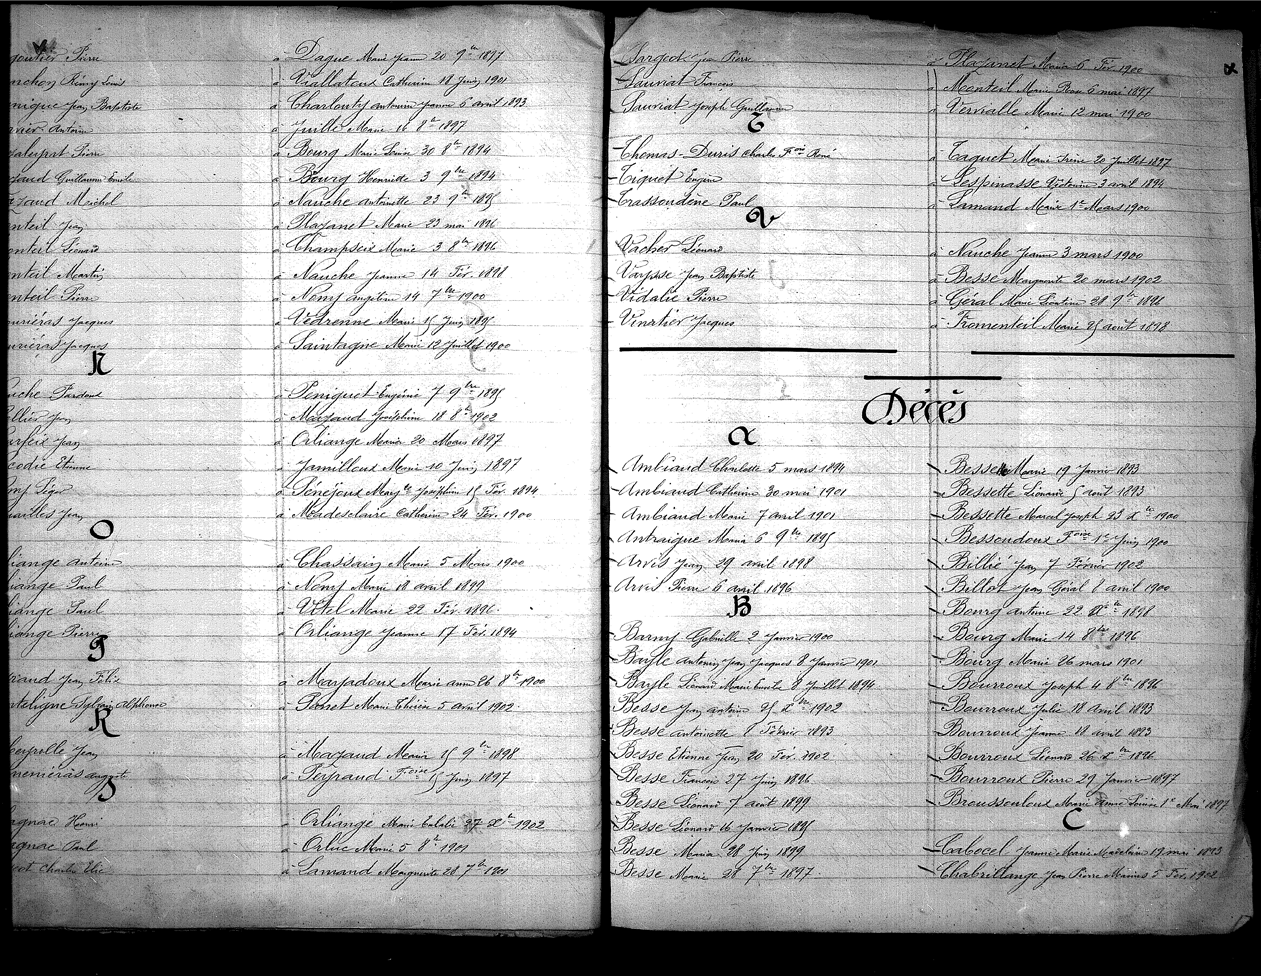 Pierre à Dague Marie Jeanne 20 9bre 1897
Rémy Louis à Viallatoux Catherine 18 Juin 1901
Jean Baptiste à Charlouty Antonia Jeanne 6 avril 1893
Antoine à Juille Marie 16 8bre 1897
Pierre à Bourg Marie Louise 30 8bre 1894
Guillaume Emile à Bourg Henriette 3 9bre 1894
Michel à Nauche Antoinette 23 9bre 1895
nteil Jean à Plazanet Marie 23 mai 1896
onteil Léonard à Champseix Marie 3 8bre 1896
nteil Martin à Nauche Jeanne 14 Fév. 1898
nteil Pierre à Nony Angéline 14 7bre 1900
Jacques à Védrenne Marie 15 Juin 1895
Jacques à Saintagne Marie 12 Juillet 1900
N
uche Pardoux à Peniguet Eugénie 7 9bre 1895
Jean à Mazaud Joséphine 18 8bre 1902
Jean à Orliange Marie 20 Mars 1897
Etienne à Jamilloux Marie 10 Juin 1897
Léger à Pénéjoux Joséphine 15 Fév. 1894
Jean à Madesclaire Catherine 24 Fév. 1900
O
liange Antoine à Chassain Marie 5 Mars 1900
liange Paul à Nony Marie 18 avril 1899
liange Paul à Vétel Marie 22 Fév. 1896
liange Pierre à Orliange Jeanne 17 Fév. 1894
P
Jean Félix à Mazadoux Marie Anne 26 8bre 1900
Sylvain Alphonse à Marie Thérèse 5 avril 1902
R
Jean à Mazaud Maria 15 9bre 1898
August à Peyraud Foise 15 Juin 1897
S
gnac Henri à Orliange Marie 27 Xbre 1902
gnac Paul à Orluc Marie 5 8bre 1901
Charles Elie à Lamand Marguerite 28 7bre 1901
Sargeot Jean Pierre à Plazanet Maria 6 Fév. 1900
Sauviat François à Monteil Marie Rose 6 mai 1897
Sauviat Joseph Guillaume à Vervialle Marie 12 mai 1900
T
Thomas-Duris Charles Fois René à Taquet Marie Irène 20 Juillet 1897
Tiquet Eugène à Lespinasse Victorine 3 avril 1894
Trassoudène Paul à Lamand Marie 1er Mars 1900
V
Vacher Léonard à Nauche Jeanne 3 mars 1900
Vaysse Jean Baptiste à Besse Marguerite 20 mars 1902
Vidalie Pierre à Géral Marie Léontine 28 9bre 1896
Vinatier Jacques à Fromenteil Marie 25 août 1898
Décès
A
Ambiaud Charlotte 5 mars 1894
Ambiaud Catherine 30 mai 1901
Ambiaud Marie 7 avril 1901
Antraigue Maria 6 9bre 1895
Arvis Jean 29 avril 1898
Arvis Pierre 6 avril 1896
B
Barny Gabrielle 2 Janvier 1900
Bayle Antonin Jean Jacques 8 Janvier 1901
Bayle Léonard Marie Emile 8 Juillet 1894
Besse Jean Antoine 25 Xbre 1902
Besse Antoinette 8 Février 1893
Besse Etienne Jean 20 Fév. 1902
Besse François 27 Juin 1896
Besse Léonard 7 août 1899
Besse Léonard 16 Janvier 1895
Besse Maria 28 Juin 1899
Besse Marie 28 7bre 1897
Besse Marie 19 Janvier 1893
Bessette Léonard 5 août 1893
Bessette Marcel Joseph 23 Xbre 1900
Bessoudoux Foise 1er Juin 1900
Billié Jean 7 Février 1902
Billot Jean Géral 8 avril 1900
Bourg Antoine 22 Xbre 1898
Bourg Marie 14 8bre 1896
Bourg Marie 26 mars 1901
Bourroux Joseph 4 8bre 1896
Bourroux Julie 18 avril 1893
Bourroux Jeanne 18 avril 1893
Bourroux Léonard 26 Xbre 1896
Bourroux Pierre 29 Janvier 1897
Broussouloux Marie Anne Louise 1er Mai 1897
C
Cabocel Jeanne Marie Madelaine 19 mai 1893
Chabrillange Jean Pierre Marius 5 Fév. 1902